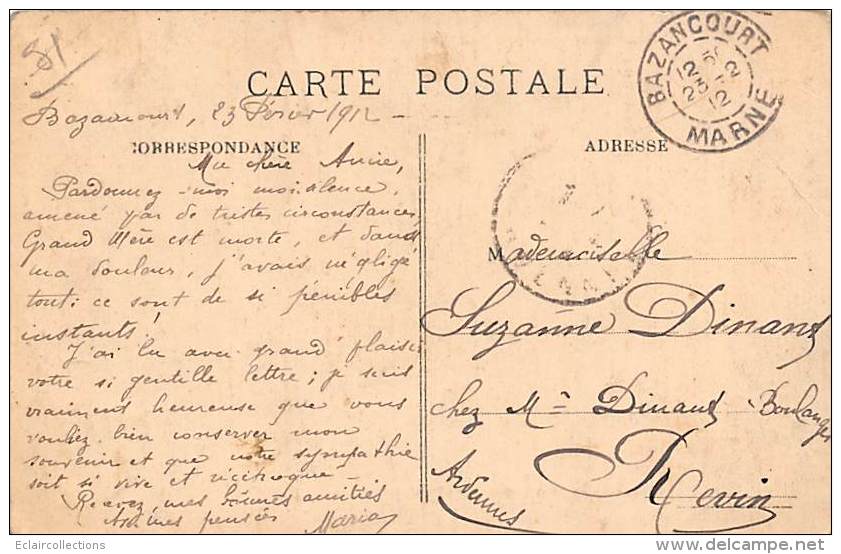 81
CARTE POSTALE
BAZANCOURT
MARNE
Bazancourt, 23 Février 1912
CORRESPONDANCE
ADRESSE
Ma chère Amie,
Pardonnez-moi mon silence,
amené par de tristes circonstances
Grand'Mère est morte, et dans
ma douleur, j'avais négligé
tout; ce sont de si pénibles
instants!
J'ai lu avec grand plaisir
votre si gentille lettre; je suis
vraiment heureuse que vous
vouliez bien conserver mon
souvenir et que notre sympathie
soit si vive et réciproque
Recevez, mes bonnes amitiés
mes pensées
Maria
Mademoiselle
Suzanne Dinant
chez Mr Dinant Boulanger
Revin
Ardennes
Eclaircollections
www.delcampe.net